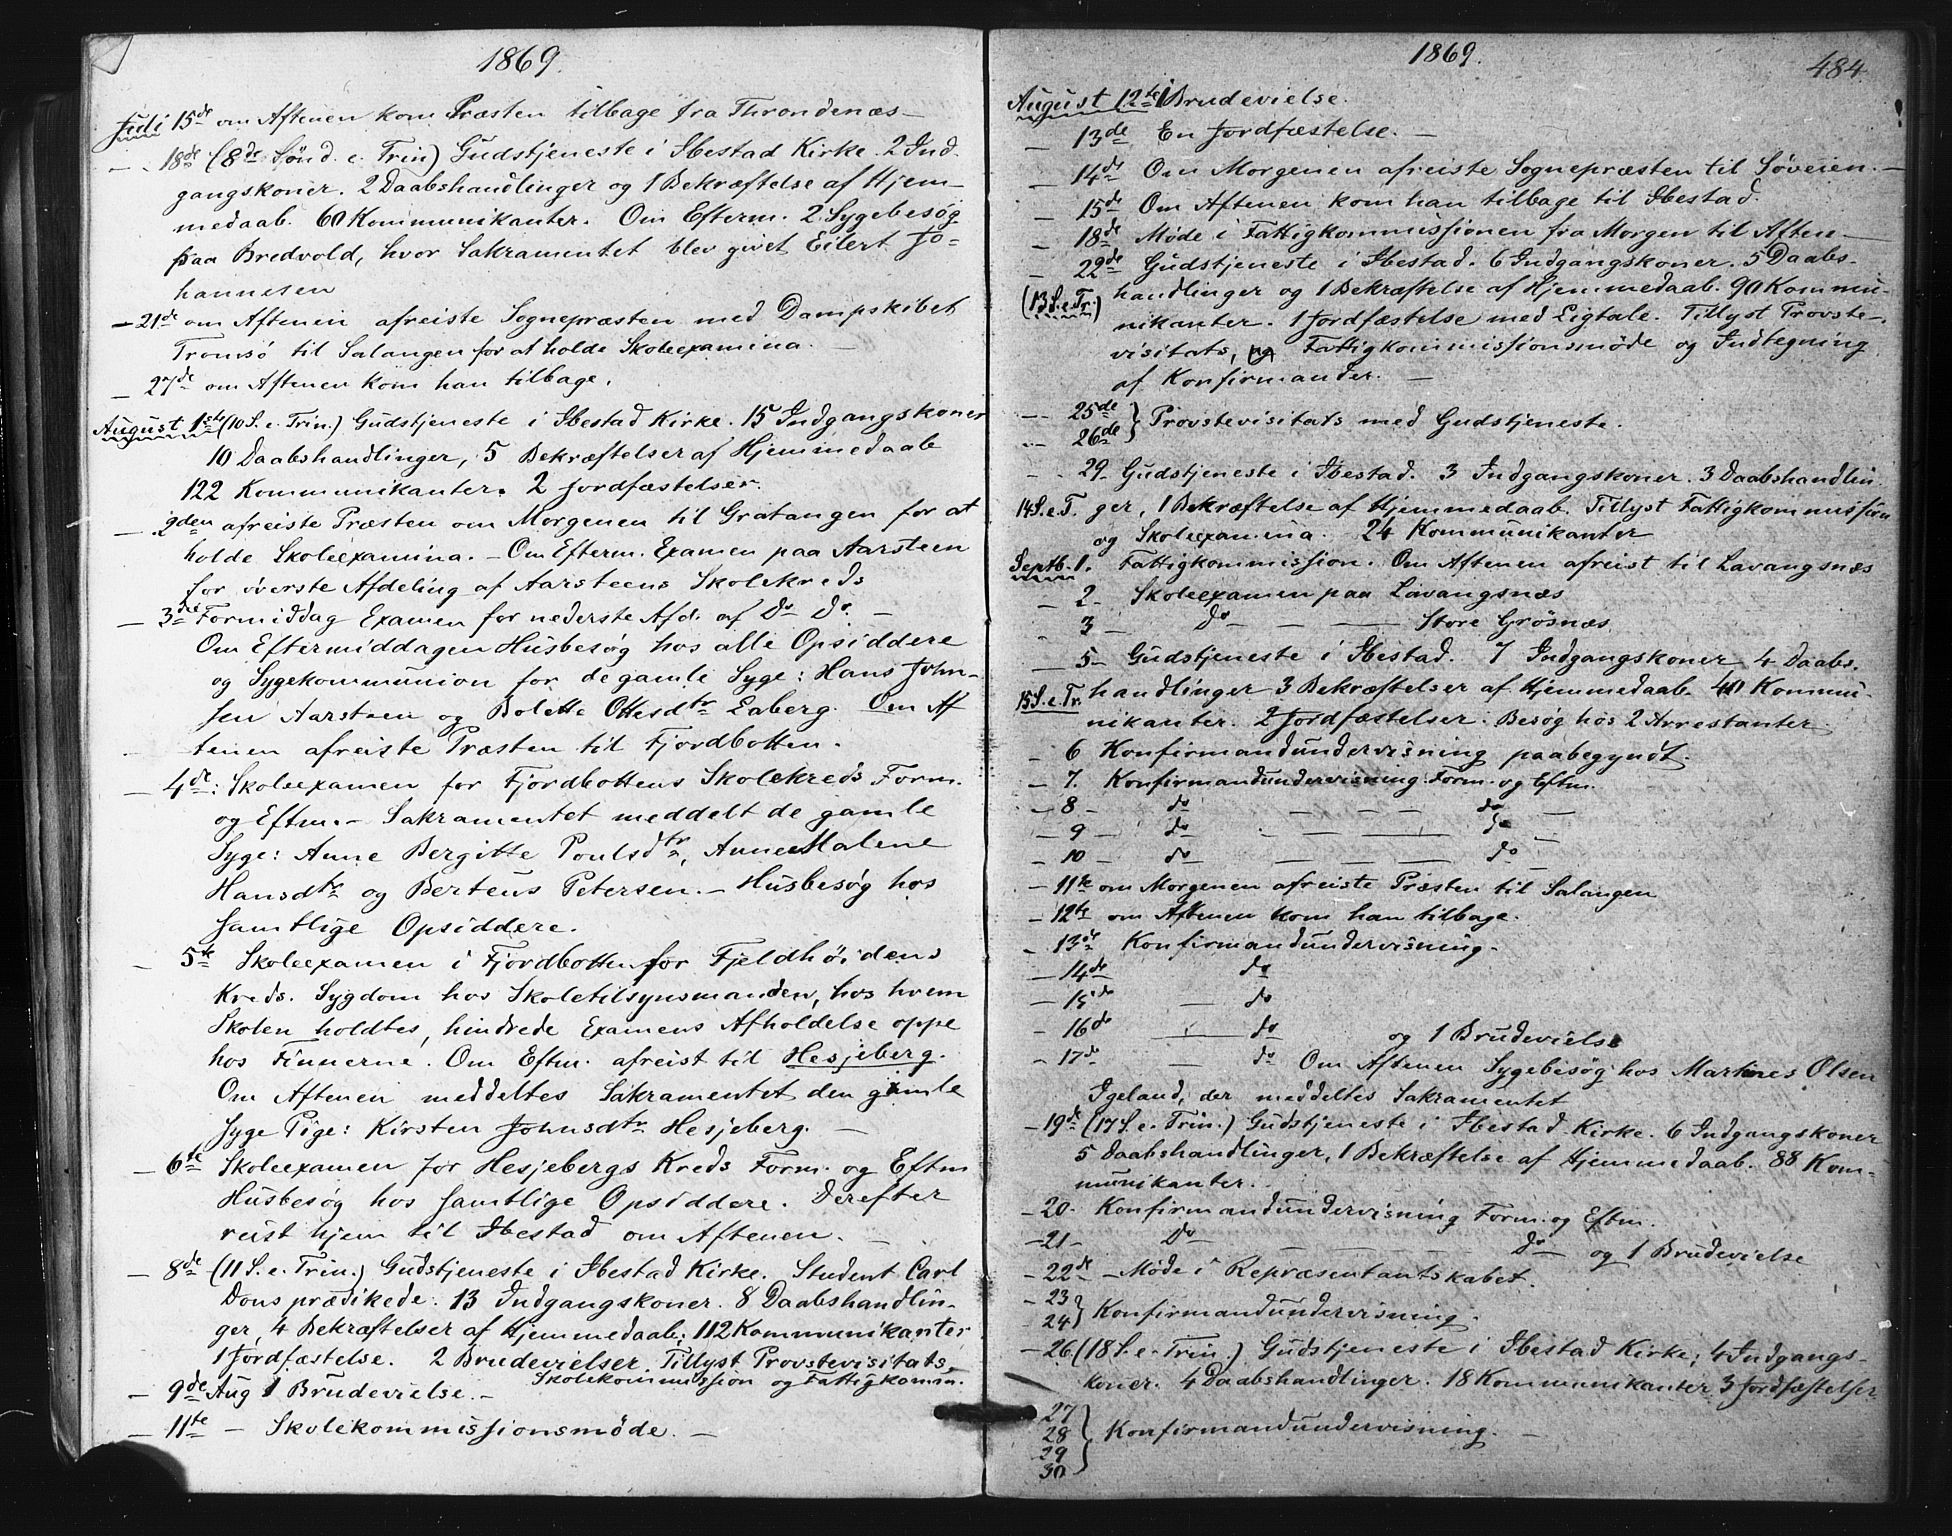 1869.
Juli 15de om Aftenen kom Præsten tilbage fra Throndenæs —
— 18de (8de Sønd. e. Trin) Gudstjeneste i Ibestad Kirke. 2 Ind-
gangskoner. 2 Daabshandlinger og 1 Bekræftelse af Hjem-
medaab. 60 Kommunikanter. Om Efterm. 2 Sygebesøg
paa Bredvold, hvor Sakramentet blev givet Eilert Jo-
hannesen
— 21de om Aftenen afreiste Sognepræsten med Dampskibet
Tromsö til Salangen for at holde Skoleexamina. —
— 27de om Aftenen kom han tilbage.
August 1ste (10 S. e. Trin.) Gudstjeneste i Ibestad Kirke. 15 Indgangskoner
10 Daabshandlinger, 5 Bekræftelser af Hjemmedaab
122 Kommunikanter. 2 Jordfæstelser.
— 2den afreiste Præsten om Morgenen til Gratangen for at
holde Skoleexamina. — Om Efterm. Examen paa Aarsteen
for överste Afdeling af Aarsteens Skolekreds
— 3die Formiddag Examen for nederste Afd. af Do Do. —
Om Eftermiddagen Husbesøg hos alle Opsiddere
og Sygekommunion for de gamle Syge: Hans John-
sen Aarsteen og Bolette Ottesdtr Laberg. Om Af
tenen afreiste Præsten til Fjordbotten.
— 4de: Skoleexamen for Fjordbottens Skolekreds Form.
og Eftm. — Sakramentet meddelt de gamle
Syge: Anne Bergitte Poulsdtr, Anne Malene
Hansdtr og Berteus Petersen. — Husbesøg hos
samtlige Opsiddere.
— 5te Skoleexamen i Fjordbotten for Fjeldhöidens
Kreds. Sygdom hos Skoletilsynsmanden, hos hvem
Skolen holdtes, hindrede Examens Afholdelse oppe
hos Finnerne. Om Eftm. afreist til Hesjeberg.
Om Aftenen meddeltes Sakramentet den gamle
syge Pige: Kirsten Johnsdtr Hesjeberg. —
— 6te Skoleexamen for Hesjebergs Kreds Form. og Eftm
Husbesøg hos samtlige Opsiddere. Derefter
reist hjem til Ibestad om Aftenen. —
— 8de (11 S. e. Trin.) Gudstjeneste i Ibestad Kirke. Student Carl
Dons prædikede. 13 Indgangskoner. 8 Daabshandlin-
ger, 4 Bekræftelser af Hjemmedaab; 112 Kommunikanter
1 Jordfæstelse. 2 Brudevielser. Tillyst Provstevisitats,
Skolekommission og Fattigkomm.
— 9de Aug 1 Brudevielse. —
— 11te — Skolekommissionsmöde. —
1869.
484
August 12te 1 Brudevielse.
— 13de En Jordfæstelse. —
— 14de Om Morgenen afreiste Sognepræsten til Söveien. —
— 15de Om Aftenen kom han tilbage til Ibestad.
— 18de Möde i Fattigkommissionen fra Morgen til Aften —
— 22de Gudstjeneste i Ibestad. 6 Indgangskoner. 5 Daabs-
(13 S. e. Tr.) handlinger og 1 Bekræftelse af Hjemmedaab. 90 Kommu-
nikanter. 1 Jordfæstelse med Ligtale. Tillyst Provste-
visitats, Fattigkommissionsmöde og Indtegning
af Konfirmander. —
— 25de
— 26de } Provstevisitats med Gudstjeneste.
— 29 Gudstjeneste i Ibestad. 3 Indgangskoner. 3 Daabshandlin
14 S. e. T. ger, 1 Bekræftelse af Hjemmedaab. Tillyst Fattigkommission
og Skoleexamina. 24 Kommunikanter
Septb. 1. Fattigkommission. Om Aftenen afreist til Lavangsnæs
— 2 — Skoleexamen paa Lavangsnæs
— 3 — Do — — — Store Grösnæs
— 5 — Gudstjeneste i Ibestad. 7 Indgangskoner 4 Daabs-
15 S. e. Tr. handlinger 3 Bekræftelser af Hjemmedaab. 40 Kommu-
nikanter. 2 Jordfæstelser. Besög hos 2 Arrestanter.
— 6 Konfirmandundervisning paabegyndt.
— 7. Konfirmandundervisning Form. og Eftm.
— 8 — do — — — — do —
— 9 — do — — — — do
— 10 — do — — — — do —
— 11te om Morgenen afreiste Præsten til Salangen
— 12te om Aftenen kom han tilbage.
— 13de Konfirmandundervisning.
— 14de do
— 15de — do
— 16de — do og 1 Brudevielse
— 17de do Om Aftenen Sygebesög hos Martines Olsen
Igeland, der meddeltes Sakramentet
— 19de (17 S. e. Trin.) Gudstjeneste i Ibestad Kirke. 6 Indgangskoner
5 Daabshandlinger, 1 Bekræftelse af Hjemmedaab. 88 Kom-
munikanter.
— 20. Konfirmandundervisning Form. og Eftm.
— 21 — Do — — — — do og 1 Brudevielse
— 22de — Möde i Repræsentantskabet.
— 23
— 24 } Konfirmandundervisning.
— 26 (18 S. e. Trin.) Gudstjeneste i Ibestad Kirke; 4 Indgangs-
koner. 4 Daabshandlinger. 18 Kommunikanter 3 Jordfæstelser
27
28 } Konfirmandundervisning. —
29
30